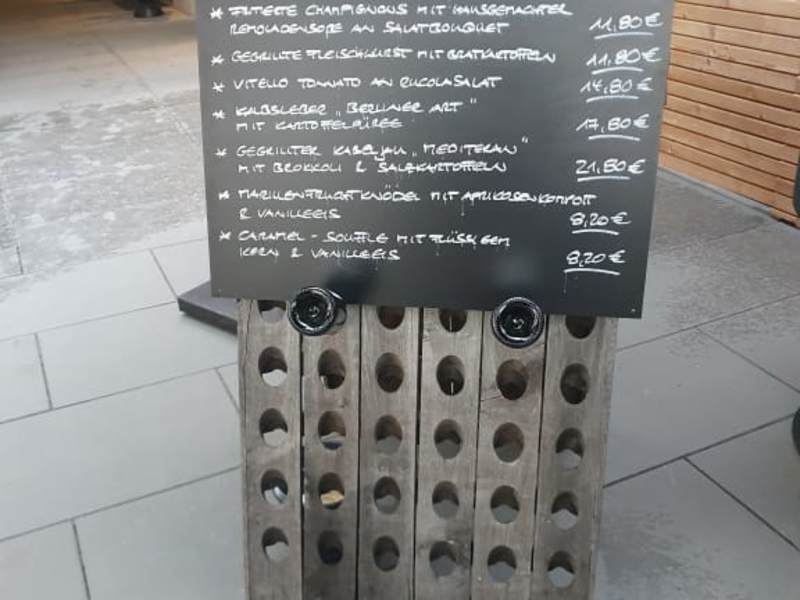 * FRITIERTE CHAMPIGNONS MIT HAUSGEMACHTER
REMOULADENSOßE AN SALATBOUQUET 11,80 €
* GEGRILLTE FLEISCHWURST MIT BRATKARTOFFELN 11,80 €
* VITELLO TOMATO AN RUCOLASALAT 14,80 €
* KALBSLEBER „BERLINER ART"
MIT KARTOFFELPÜREE 17,80 €
* GEGRILLTER KABELJAU „MEDITERAN"
MIT BROKKOLI & SALZKARTOFFELN 21,80 €
* MARILLENFRUCHTKNÖDEL MIT APRIKOSENKOMPOTT
& VANILLEEIS 8,20 €
* CARAMEL - SOUFFLE MIT FLÜSSIGEM
KERN & VANILLEEIS 8,20 €